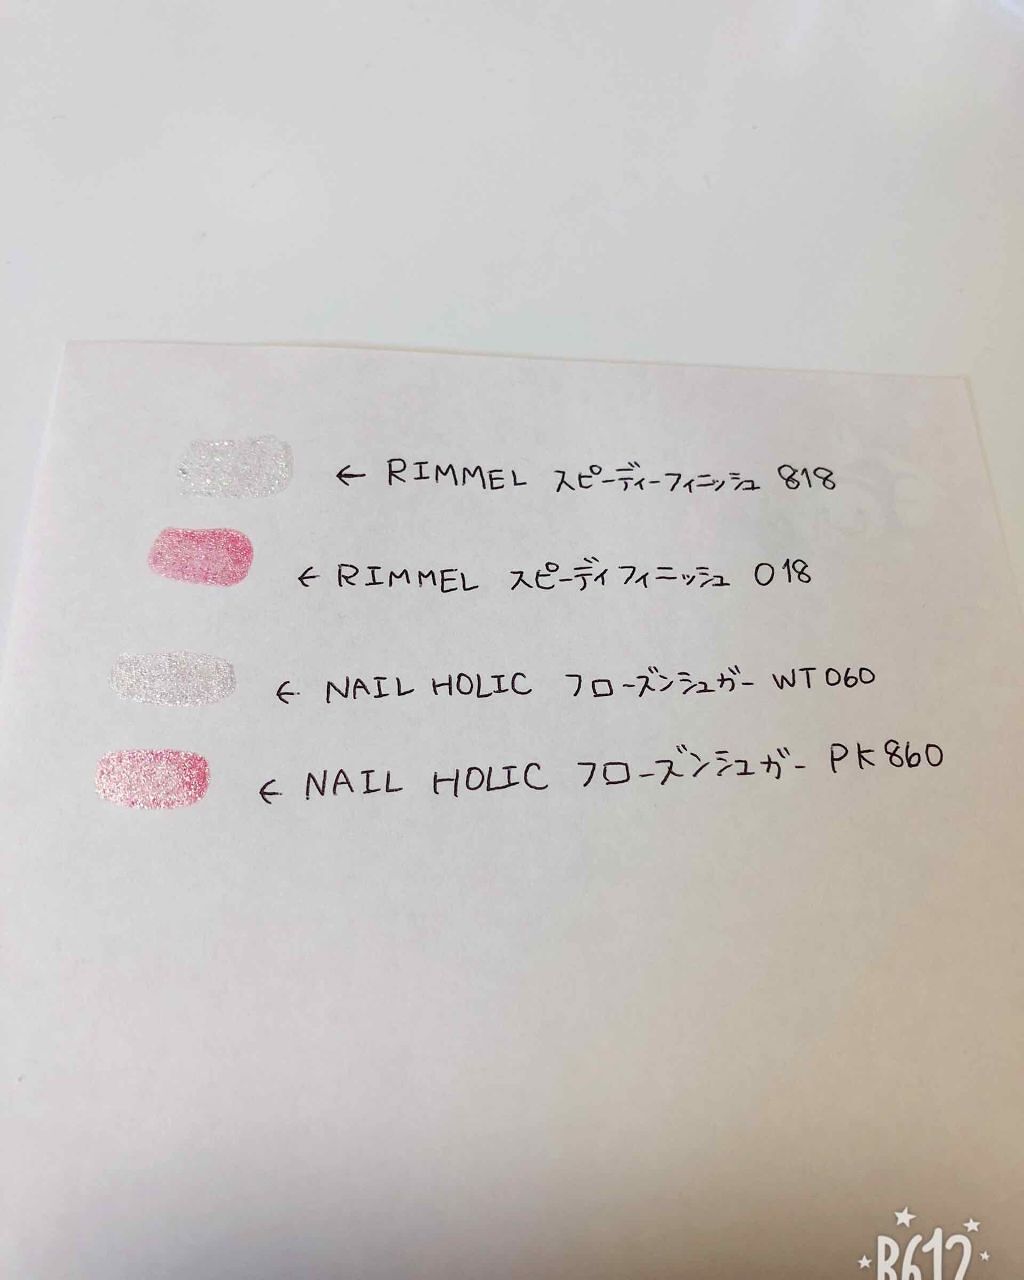 ← RIMMEL スピーディーフィニッシュ 818
← RIMMEL スピーディフィニッシュ 018
← NAIL HOLIC フローズンシュガー WT060
← NAIL HOLIC フローズンシュガー PK860
B612